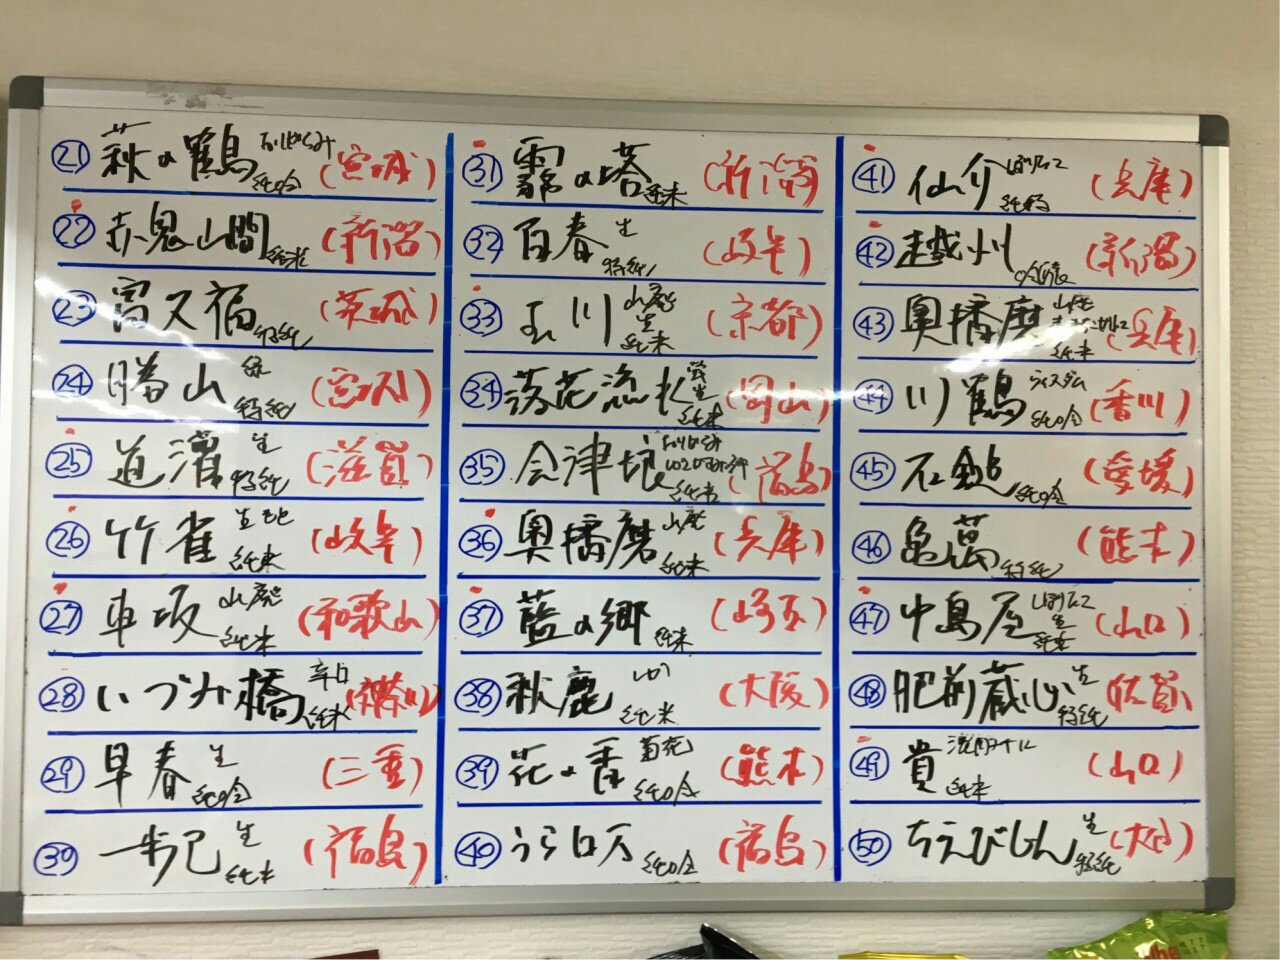 ㉑ 萩の鶴 純吟 (宮城)
㉒ 赤鬼山間 純米 (新潟)
㉓ 富久福 特純 (茨城)
㉔ 勝山 特純 (宮城)
㉕ 道灌 生 特純 (滋賀)
㉖ 竹雀 生酛 純米 (岐阜)
㉗ 車坂 山廃 純米 (和歌山)
㉘ いづみ橋 辛口 純米 (神奈川)
㉙ 早春 生 純吟 (三重)
㉚ 一歩己 生 純米 (福島)
㉛ 霧の塔 純米 (新潟)
㉜ 百春 生 特純 (岐阜)
㉝ 玉川 山廃 生 純米 (京都)
㉞ 落花流水 生 純米 (岡山)
㉟ 会津娘 純米 (福島)
㊱ 奥播磨 山廃 純米 (兵庫)
㊲ 藍の郷 純米 (埼玉)
㊳ 秋鹿 純米 (大阪)
㊴ 花の香 菊花 純吟 (熊本)
㊵ うら ロ万 純吟 (福島)
㊶ 仙介 特純 (兵庫)
㊷ 越州 (新潟)
㊸ 奥播磨 山廃 純米 (兵庫)
㊹ 川鶴 ウィズダム 純吟 (香川)
㊺ 石鎚 純吟 (愛媛)
㊻ 亀萬 特純 (熊本)
㊼ 中島屋 生 純米 (山口)
㊽ 肥前蔵心 生 特純 (佐賀)
㊾ 貴 純米 (山口)
㊿ ちえびじん 生 特純 (大分)